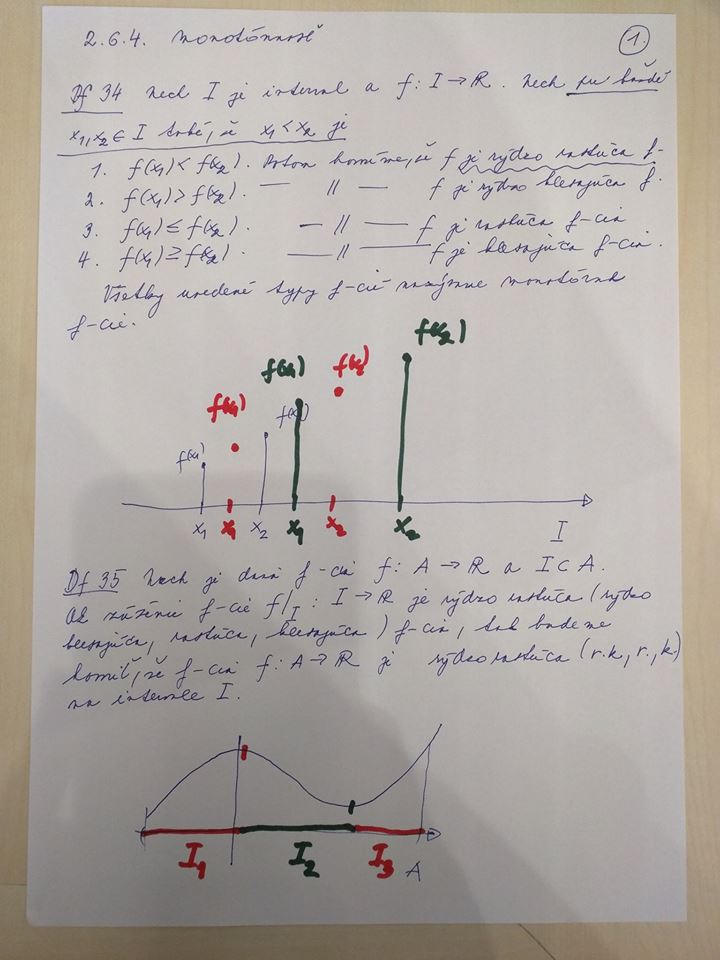 2.6.4. Monotónnosť
1.
Df 34 Nech I je interval a f: I → R. Nech pre každé
x₁,x₂ ∈ I také, že x₁ < x₂ je
1. f(x₁) < f(x₂). Potom hovoríme, že f je rýdzo rastúca f.
2. f(x₁) > f(x₂). — // — f je rýdzo klesajúca f.
3. f(x₁) ≤ f(x₂). — // — f je rastúca f-cia
4. f(x₁) ≥ f(x₂). — // — f je klesajúca f-cia.
Všetky uvedené typy f-cií nazývame monotónne
f-cie.
f(x₂)
f(x₁) f(x₂)
f(x₁) f(x₂)
f(x₁)
x₁ x₁ x₂ x₁ x₂ x₂ I
Df 35 Nech je daná f-cia f: A → R a I ⊂ A.
Ak zúženie f-cie f/I : I → R je rýdzo rastúca (rýdzo
klesajúca, rastúca, klesajúca) f-cia, tak budeme
hovoriť, že f-cia f: A → R je rýdzo rastúca (r.k, r., k.)
na intervale I.
I₁ I₂ I₃ A